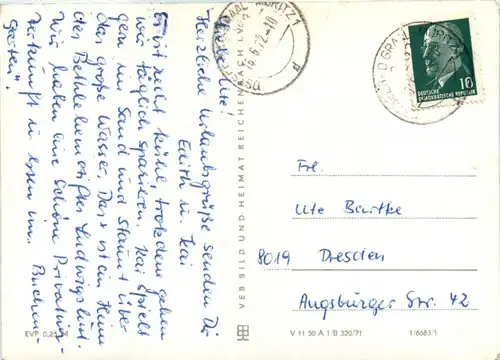 Liebe Ute!
Herzliche Urlaubsgrüße senden Dir
Edith u. Kai
Es ist recht kühl, trotzdem gehen
wir täglich spazieren. Kai spielt
gern im Sand und staunt über
das große Wasser. Das ist ein
des
Wir haben eine schöne Privatunter-
kunft u. essen im "Buchen-
garten".
Frl.
Ute Bartke
8019 Dresden
Augsburger Str. 42
10
DEUTSCHE
DEMOKRATISCHE REPUBLIK
VEB BILD UND HEIMAT REICHENBACH I.V.
EVP 0,25
V 11 50 A 1/B 320/71
1/6683/1